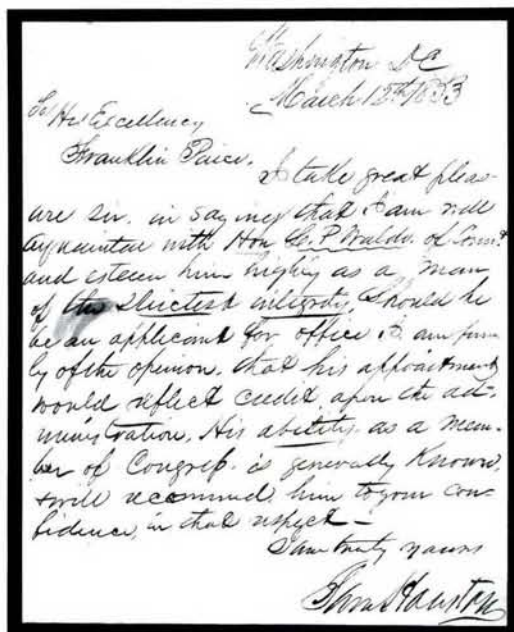 Washington DC
March 12th 1853
To His Excellency
Franklin Peirce.
I take great pleas-
ure sir. in saying that I am well
acquainted with Hon L. P. Waldo. of Connt
and esteem him highly as a man
of the strictest integrity, Should he
be an applicant for office I am firm
ly of the opinion. that his appointment
would reflect credit upon the ad-
ministration. His ability. as a mem-
ber of Congress. is generally known,
& will recommend him to your con-
fidence, in that respect –
I am truly yours
Sam Houston